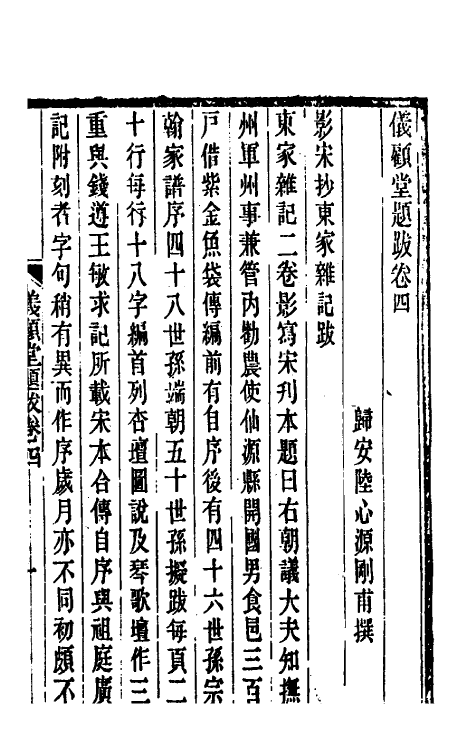 儀顧堂題跋卷四
歸安陸心源剛甫撰
影宋抄東家雜記跋
東家雜記二卷影寫宋刋本題曰右朝議大夫知撫
州軍州事兼管内勸農使仙源縣開國男食邑三百
戸借紫金魚袋傳編前有自序後有四十六世孫宗
翰家譜序四十八世孫端朝五十世孫擬跋每頁二
十行每行十八字編首列杏壇圖說及琴歌壇作三
重與錢遵王敏求記所載宋本合傳自序與祖庭廣
記附刻者字句稍有異而作序歲月亦不同初頗不
儀顧堂題跋卷四
一